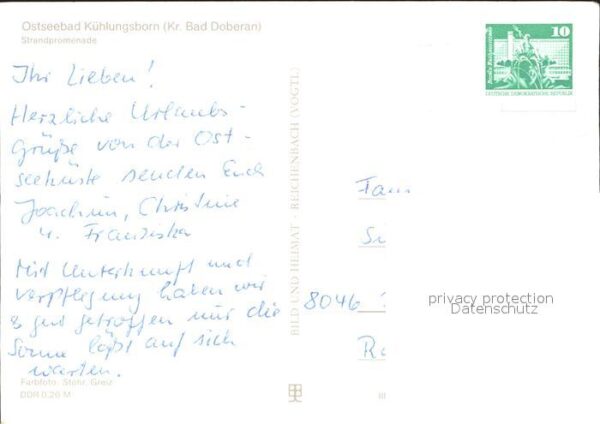 Ostseebad Kühlungsborn (Kr. Bad Doberan)
Strandpromenade
Ihr Lieben!
Herzliche Urlaubs-
grüße von der Ost-
seeküste senden Euch
Joachim, Christine
u. Franziska
Mit Unterkunft und
Verpflegung haben wir
es gut getroffen nur die
Sonne läßt auf sich
warten.
Farbfoto: Stöhr, Greiz
DDR 0,20 M
BILD UND HEIMAT · REICHENBACH (VOGTL)
10
DEUTSCHE DEMOKRATISCHE REPUBLIK
Fam
8046
privacy protection
Datenschutz